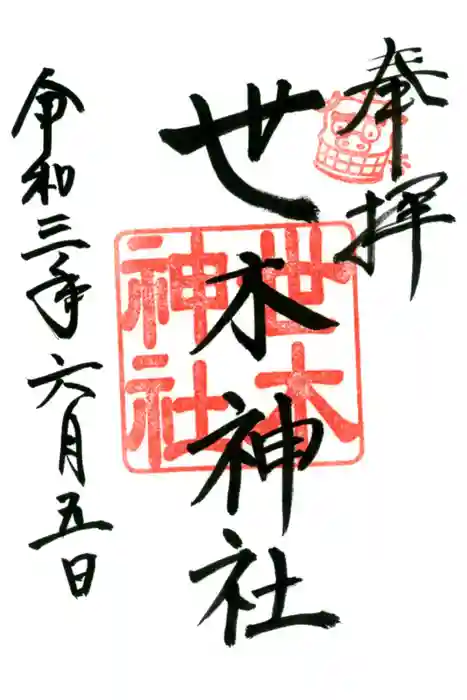 奉拝
せ木神社
世木
神社
令和三年六月五日